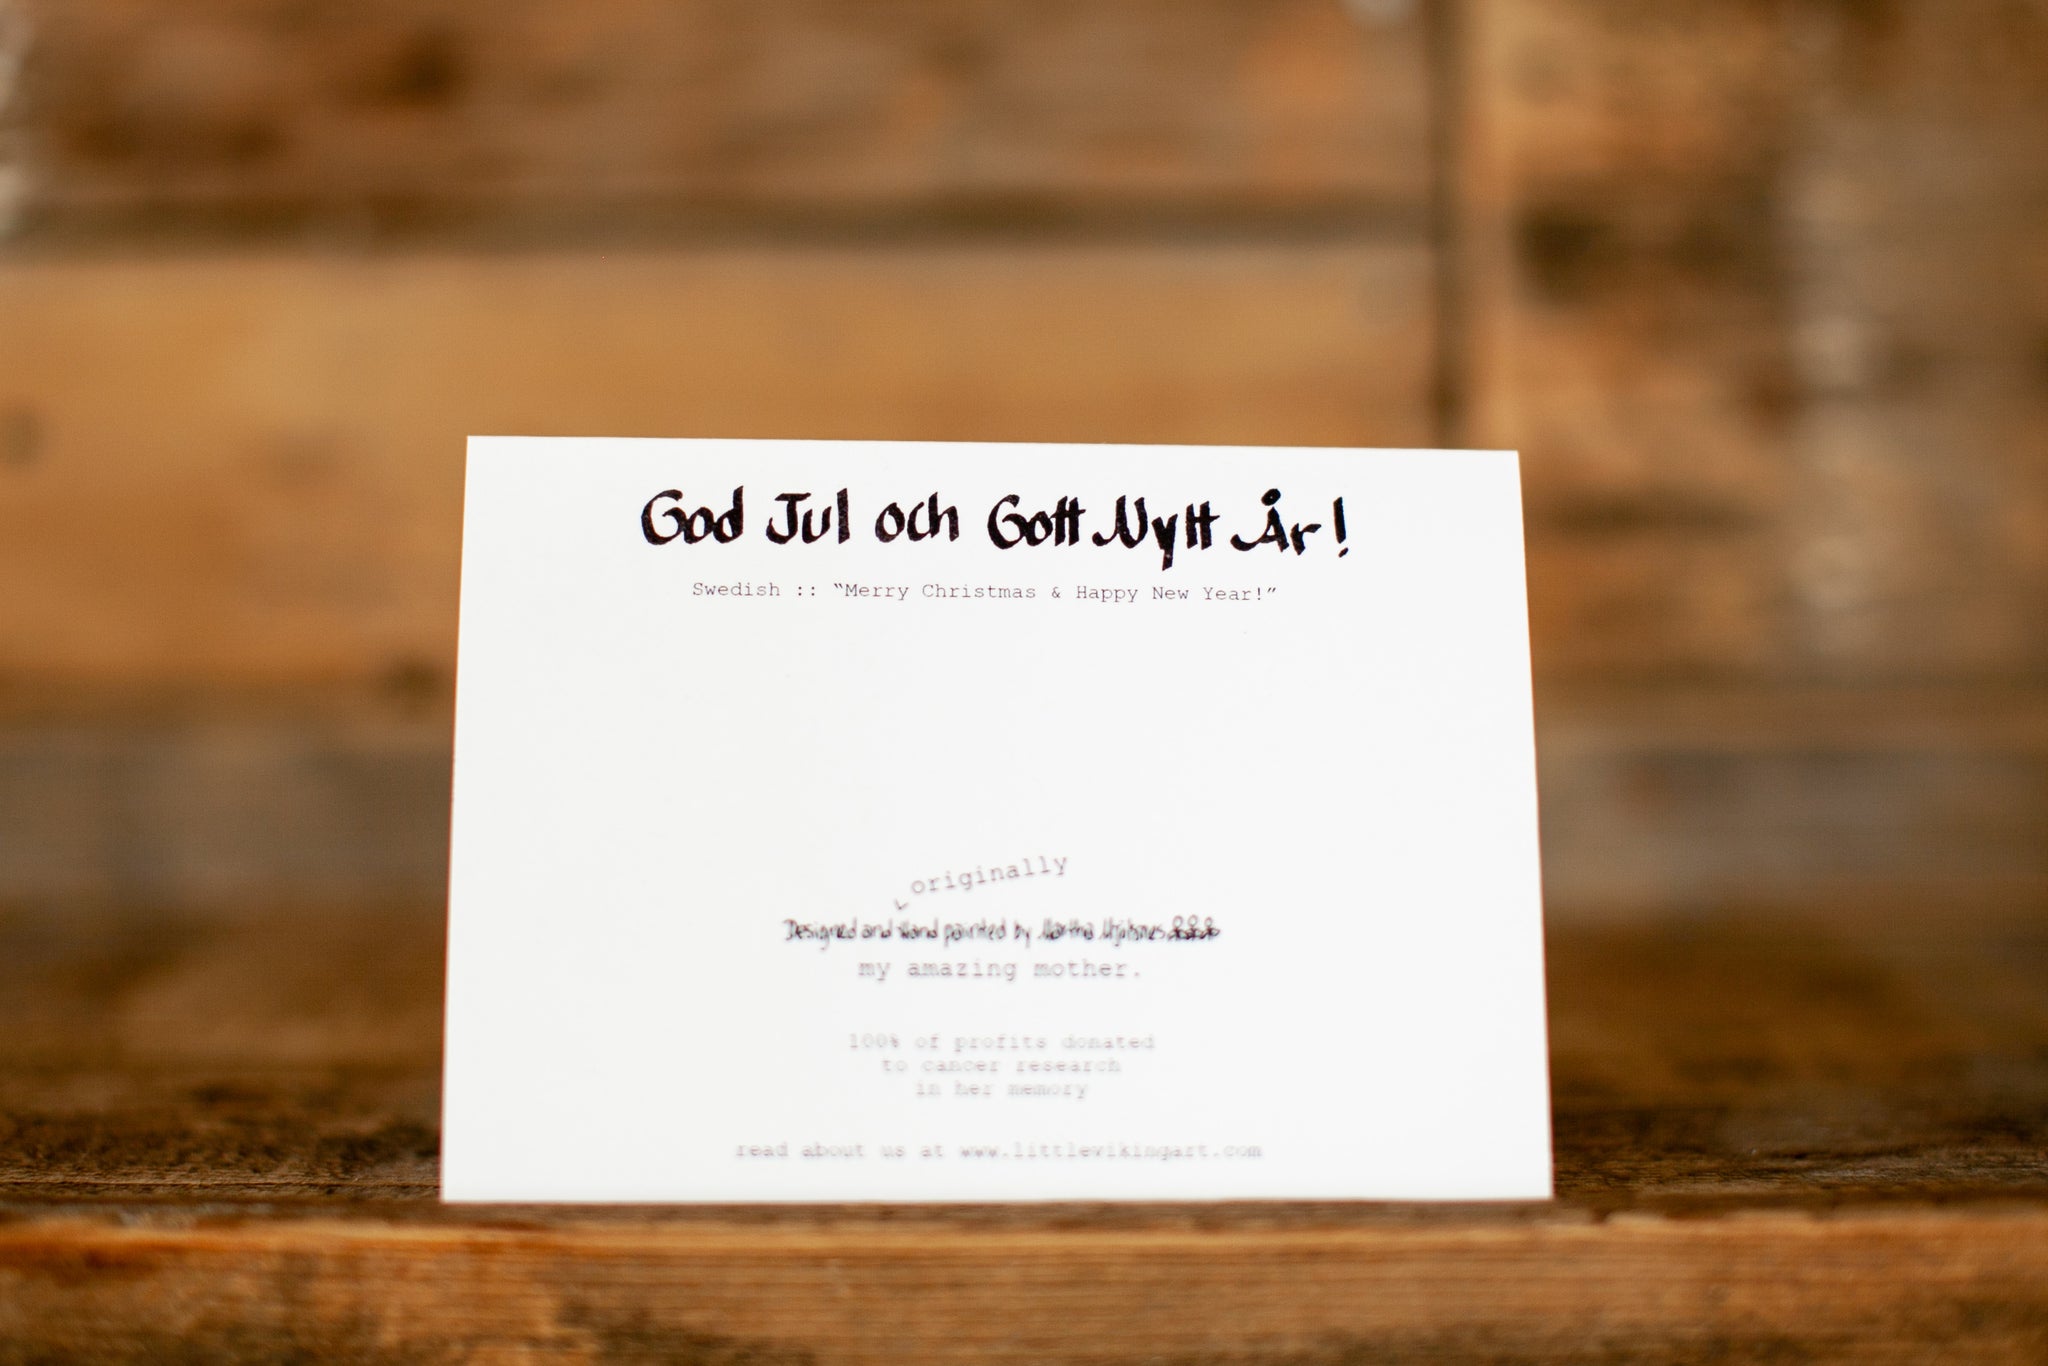 God Jul och Gott Nytt År!
Swedish :: “Merry Christmas & Happy New Year!”
originally
Designed and Hand painted by Martha
my amazing mother.
100% of profits donated
to cancer research
in her memory
read about us at www.littlevikingart.com